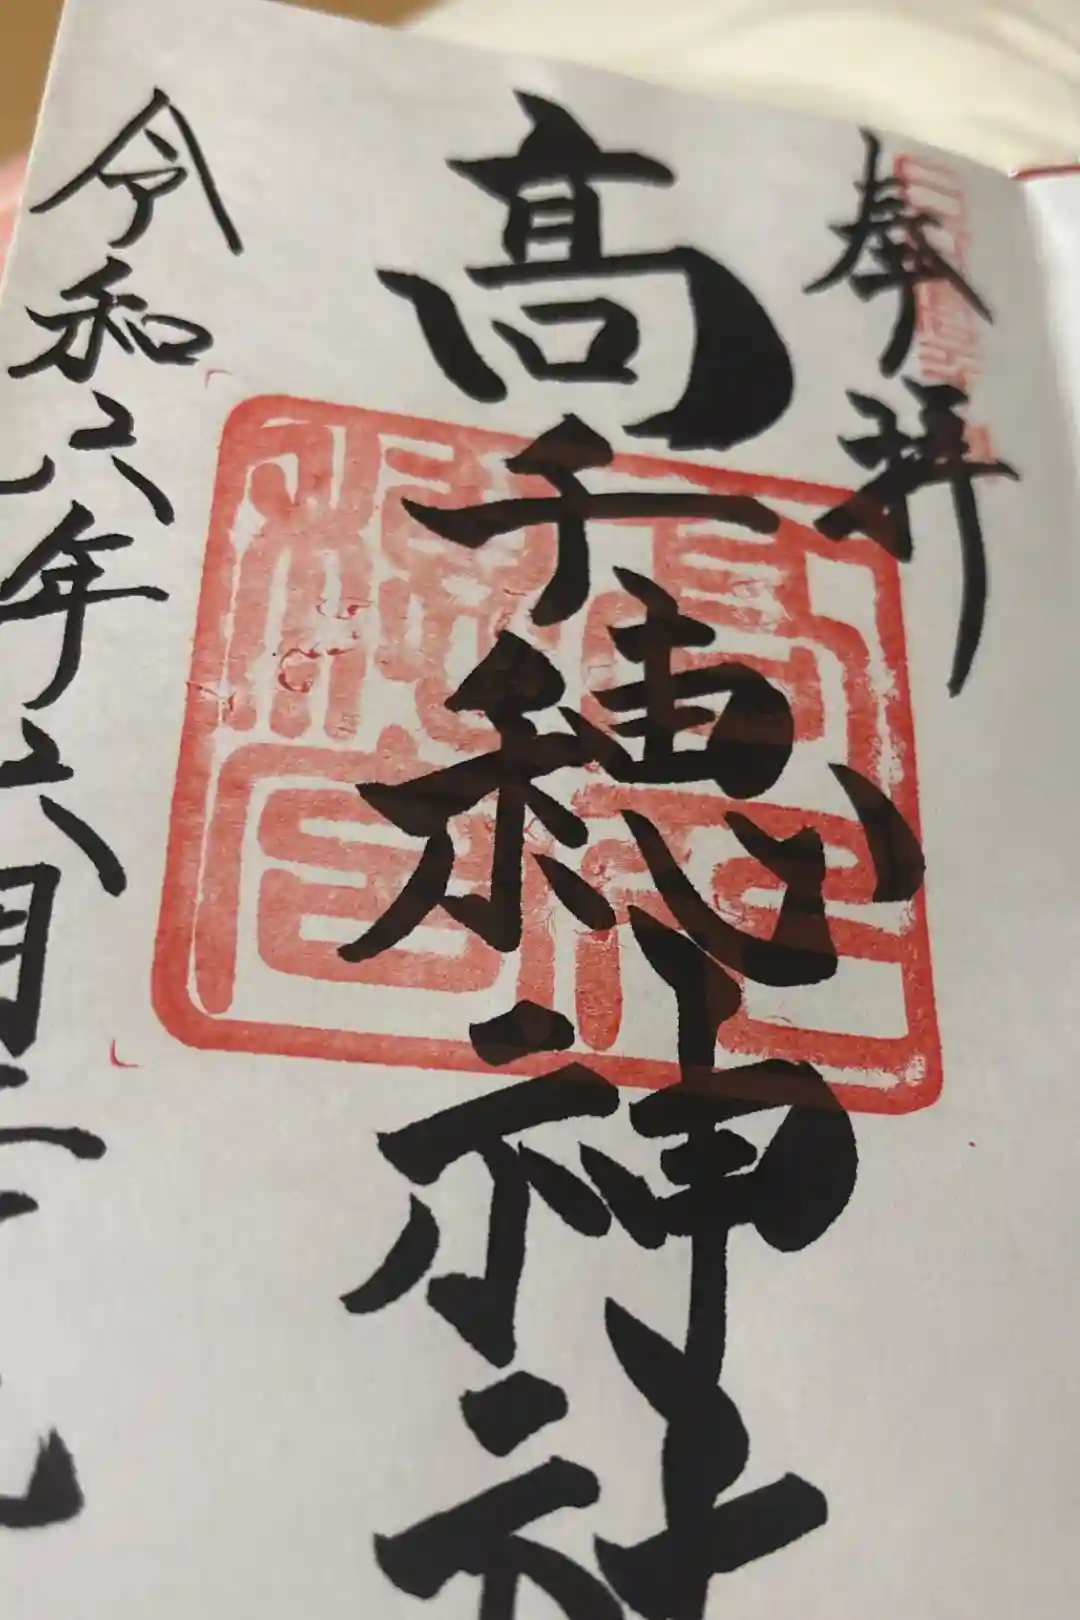 奉拝
高千穂神社
令和六年六月二十